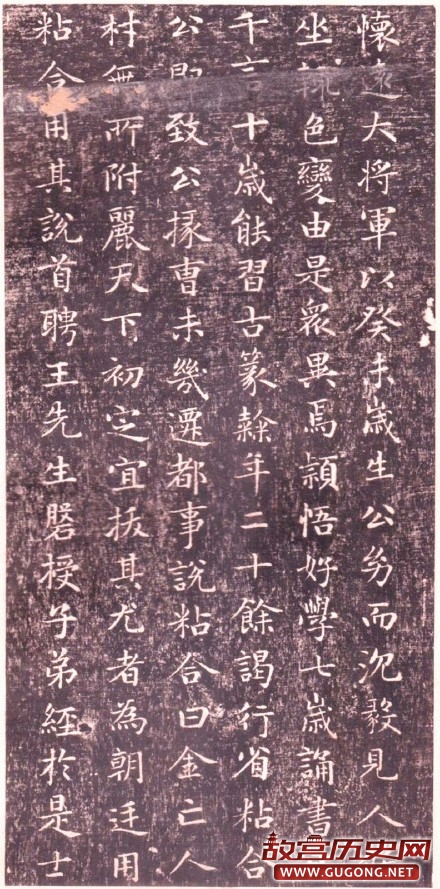 懷遠大將軍以癸未歲生公幼而沉毅見人
坐輒色變由是衆異焉頴悟好學七歲誦書
千言十歲能習古篆隸年二十餘謁行省粘合
公即致公掾曹未幾遷都事說粘合曰金亡人
材無所附麗天下初定宜拔其尤者為朝廷用
粘合用其說首聘王先生磐授子弟經於是士
故宫历史网
WWW.GUGONG.NET